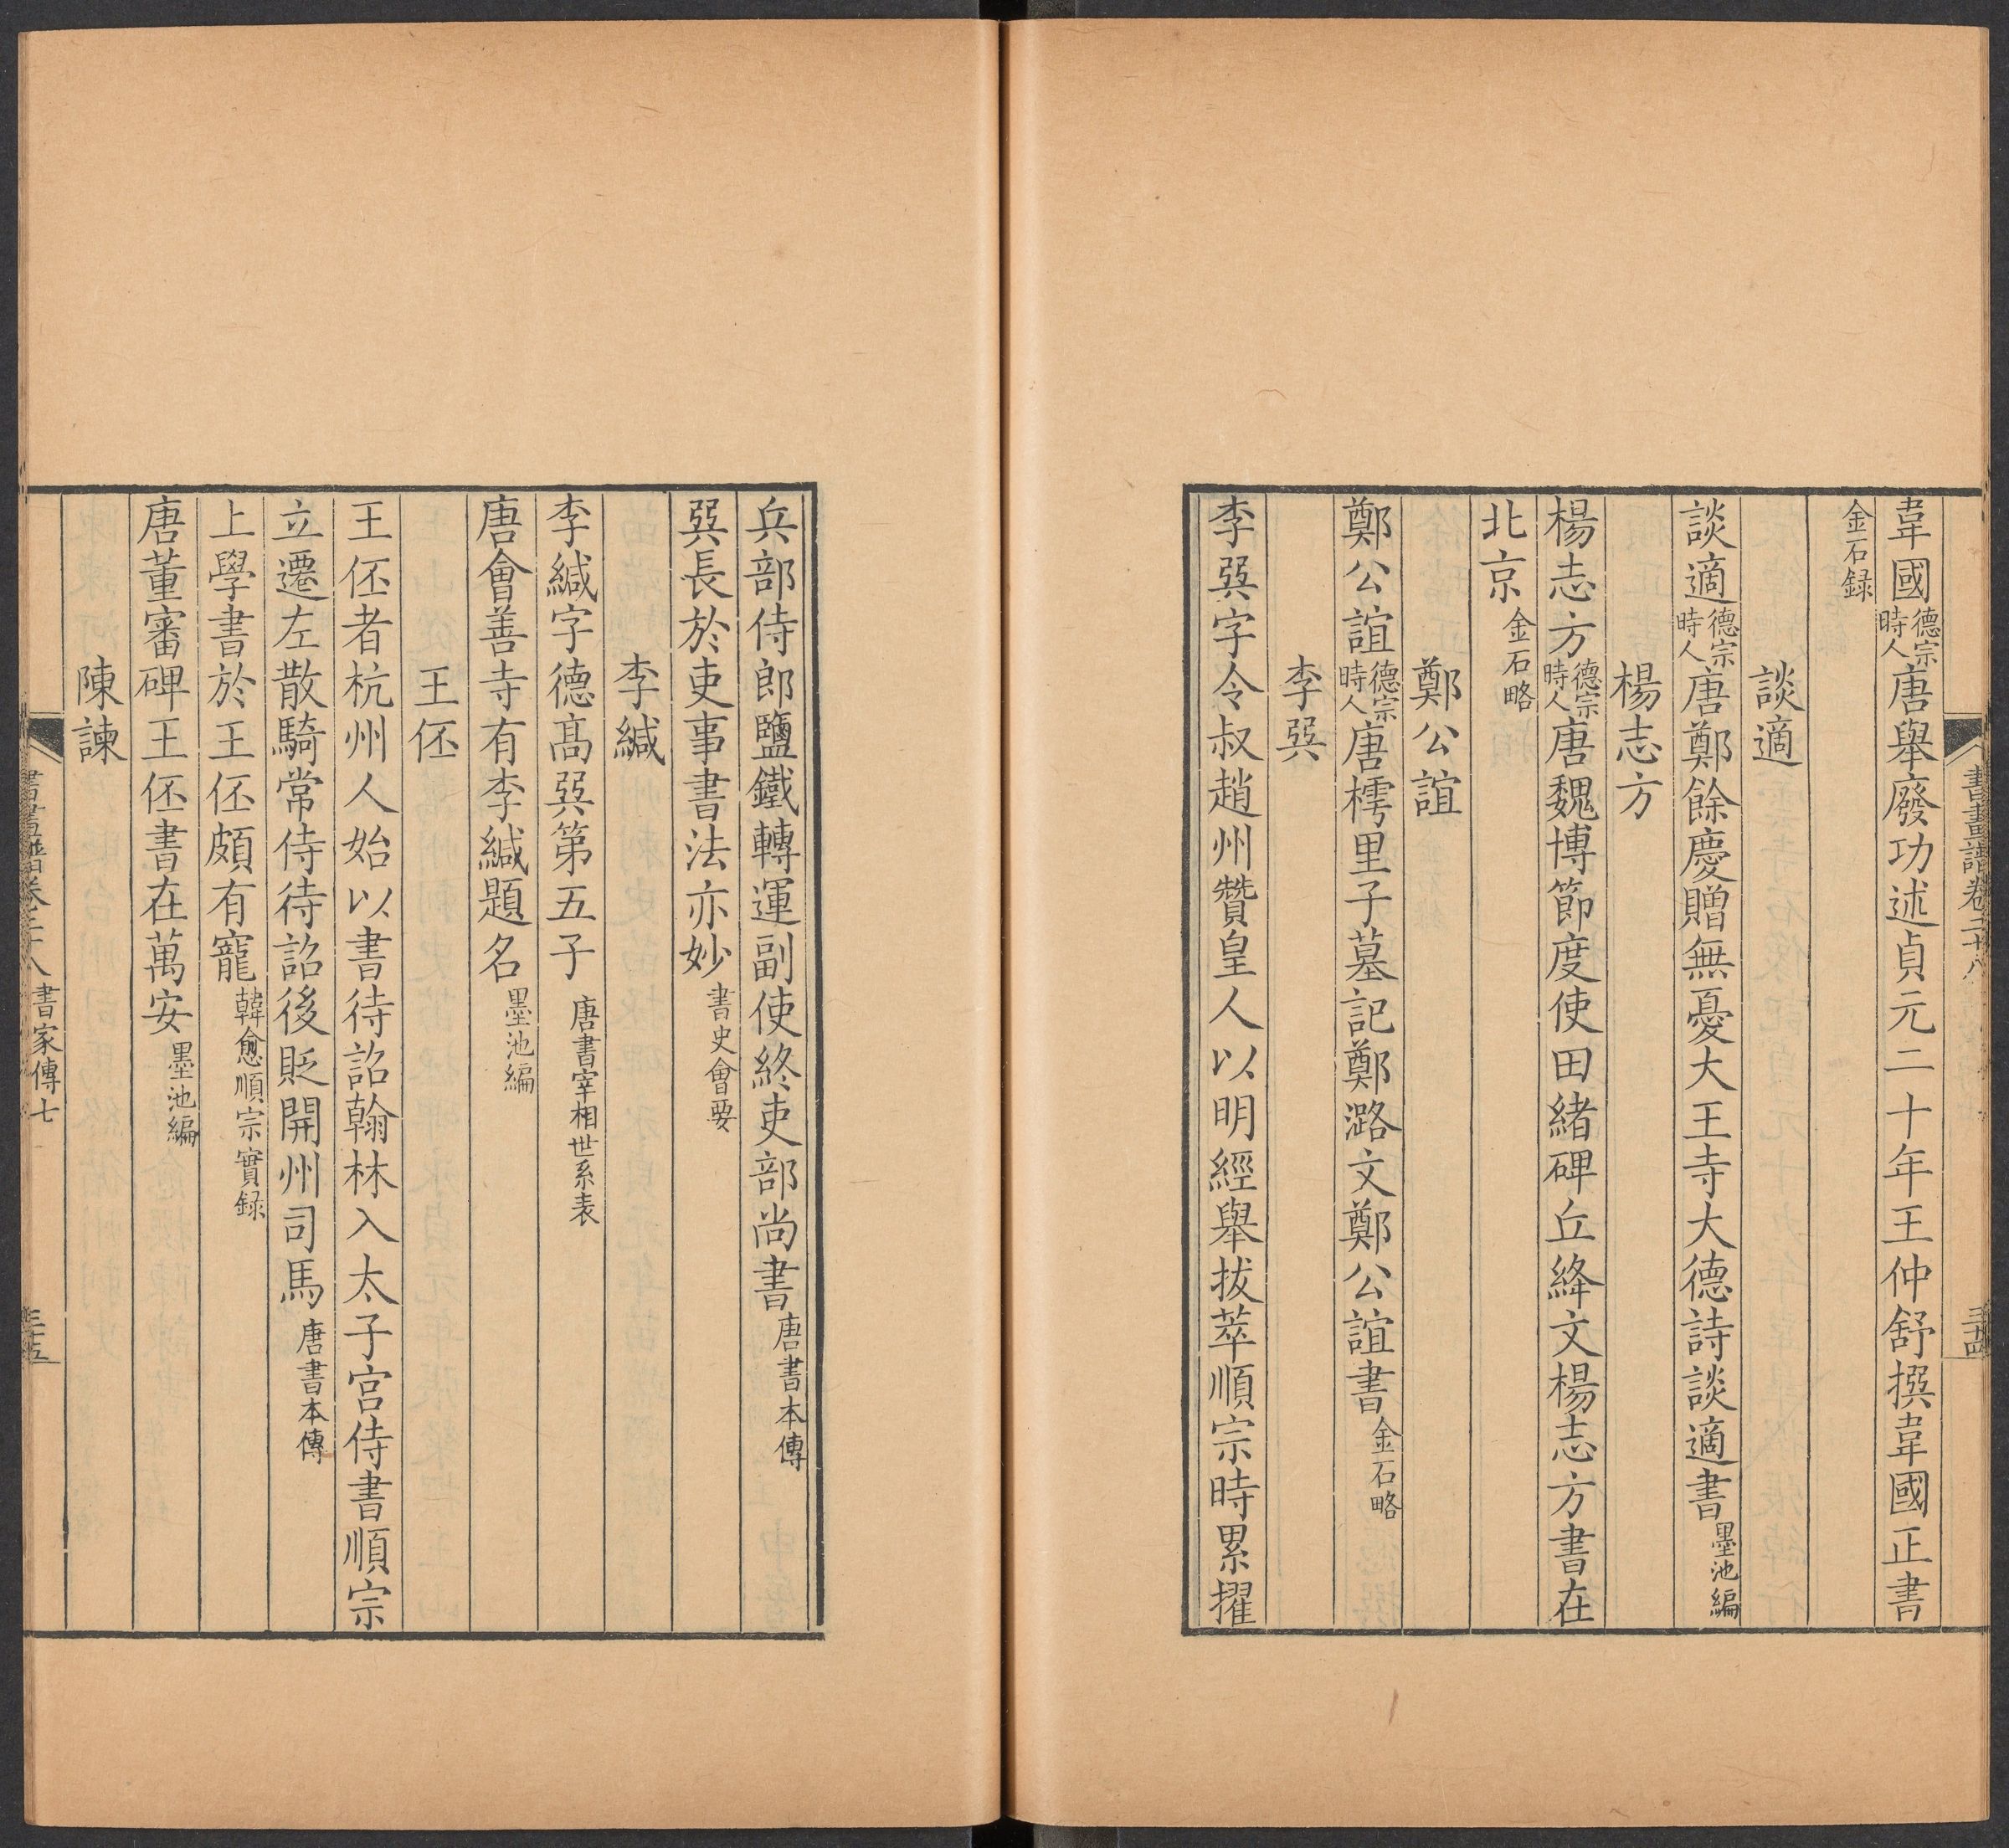 書畫譜卷二十八
三十四
韋國德宗時人唐舉廢功述貞元二十年王仲舒撰韋國正書
金石録
談適
談適德宗時人唐鄭餘慶贈無憂大王寺大德詩談適書墨池編
楊志方
楊志方德宗時人唐魏博節度使田緒碑丘絳文楊志方書在
北京金石略
鄭公誼
鄭公誼德宗時人唐樗里子墓記鄭潞文鄭公誼書金石略
李巽
李巽字令叔趙州贊皇人以明經舉拔萃順宗時累擢
兵部侍郎鹽鐵轉運副使終吏部尚書唐書本傳
巽長於吏事書法亦妙書史會要
李緘
李緘字德髙巽第五子唐書宰相世系表
唐會善寺有李緘題名墨池編
王伾
王伾者杭州人始以書待詔翰林入太子宮侍書順宗
立遷左散騎常侍待詔後貶開州司馬唐書本傳
上學書於王伾頗有寵韓愈順宗實録
唐董審碑王伾書在萬安墨池編
陳諫
書畫譜卷二十八 書家傳七
三十五